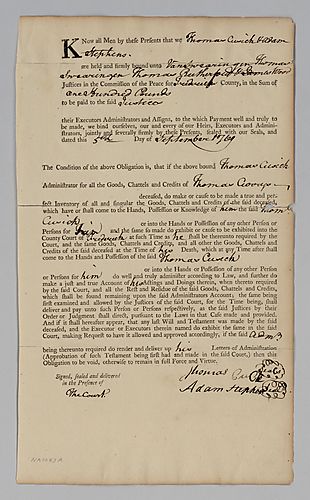 Know all Men by these Presents that we Thomas Cusick & Adam
Stephens
are held and firmly bound unto Van Swearingen Thomas
Swearingen Thomas Rutherford & James Wood
Justices in the Commission of the Peace for Frederick County, in the Sum of
One Hundred Pounds
to be paid to the said Justices
their Executors Administrators and Assigns, to the which Payment well and truly to
be made, we bind ourselves, our and every of our Heirs, Executors and Admini-
strators, jointly and severally firmly by these Presents, sealed with our Seals, and
dated this 5th Day of September
The Condition of the above Obligation is, that if the above bound Thomas Cusick
Administrator for all the Goods, Chattels and Credits of Thomas
deceased, do make or cause to be made a true and per-
fect Inventory of all and singular the Goods, Chattels and Credits of the said deceased,
which have or shall come to the Hands, Possession or Knowledge of him the said Thomas
Cusick
or into the Hands or Possession of any other Person or
Persons for him and the same so made do exhibit or cause to be exhibited into the
County Court of Frederick at such Time as he shall be thereunto required by the
Court, and the same Goods, Chattels and Credits, and all other the Goods, Chattels
and Credits of the said deceased at the Time of his Death, which at any Time after shall
come to the Hands or Possession of the said Thomas Cusick
or into the Hands or Possession of any other Person
or Persons for him do well and truly administer according to Law, and further do
make a just and true Account of his Actings and Doings therein, when thereto required
by the said Court, and all the Rest and Residue of the said Goods, Chattels and Credits,
which shall be found remaining upon the said Administrators Account, the same being
first examined and allowed by the Justices of the said Court, for the Time being, shall
deliver and pay unto such Person or Persons respectively, as the said Justices by their
Order or Judgment shall direct, pursuant to the Laws in that Case made and provided.
And if it shall hereafter appear, that any last Will and Testament was made by the said
deceased, and the Executor or Executors therein named do exhibit the same in the said
Court, making Request to have it allowed and approved accordingly, if the said
being thereunto required do render and deliver up his Letters of Administration
(Approbation of such Testament being first had and made in the said Court,) then this
Obligation to be void, otherwise to remain in full Force and Virtue.
Signed, sealed and delivered
in the Presence of
The Court
Thomas Cusick
Adam Stephen